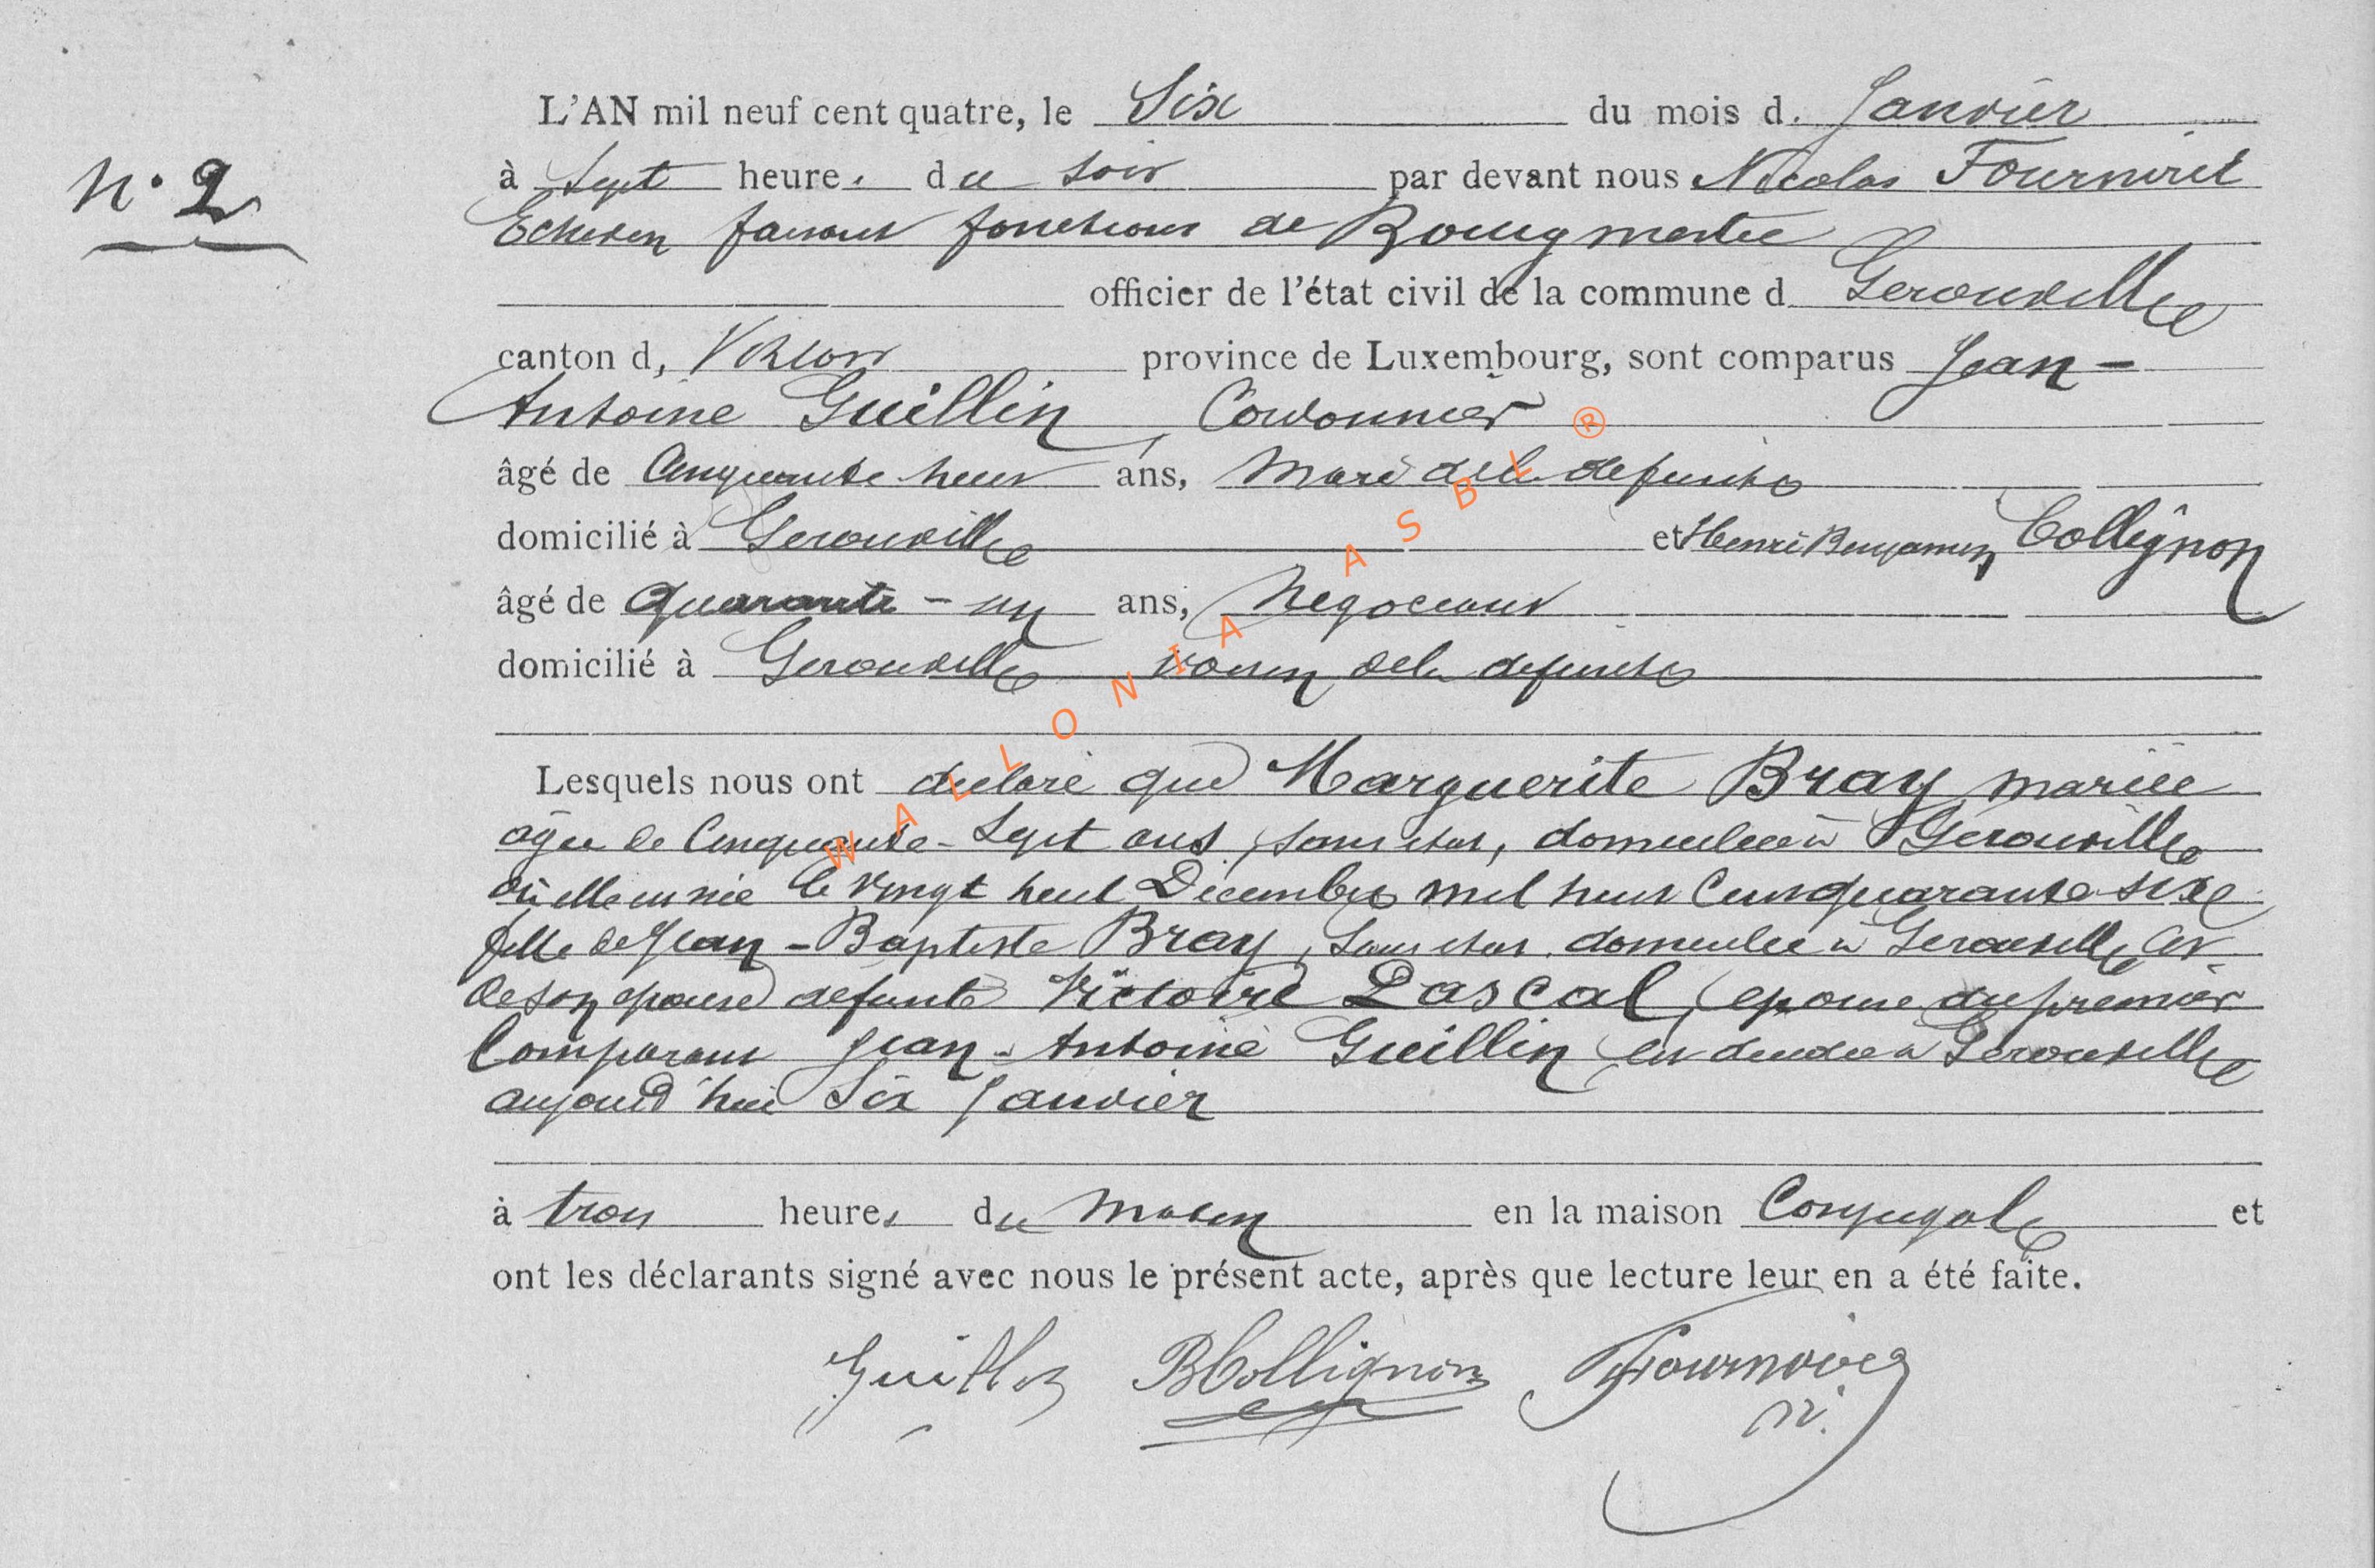 L'AN mil neuf cent quatre, le Six du mois d. Janvier
N° 2
à Sept heures du soir par devant nous Nicolas Fourniret
Echevin faisant fonctions de Bourgmestre
officier de l'état civil de la commune d Gerouville
canton d, Virton province de Luxembourg, sont comparus Jean-
Antoine Guillin, Cordonnier
âgé de Cinquante neuf ans, Mari de la defunte
domicilié à Gerouville et Henri Benjamin Collignon
âgé de quarante-un ans, Negociant
domicilié à Gerouville voisin de la defunte
Lesquels nous ont declaré que Marguerite Bray mariée
agée de Cinquante-Sept ans, sans etat, domiciliée à Gerouville
où elle est née le vingt huit Decembre mil huit Cent quarante six
fille de Jean-Baptiste Bray, Sans etat, domicilié à Gerouville et
de son epouse defunte Victoire Pascal, epouse du premier
Comparant Jean-Antoine Guillin est decedée à Gerouville
aujourd'hui Six Janvier
à trois heures du Matin en la maison Conjugale et
ont les déclarants signé avec nous le présent acte, après que lecture leur en a été faite.
Guillin BCollignon Fourniret
N.
WALLONIA ASBL ®